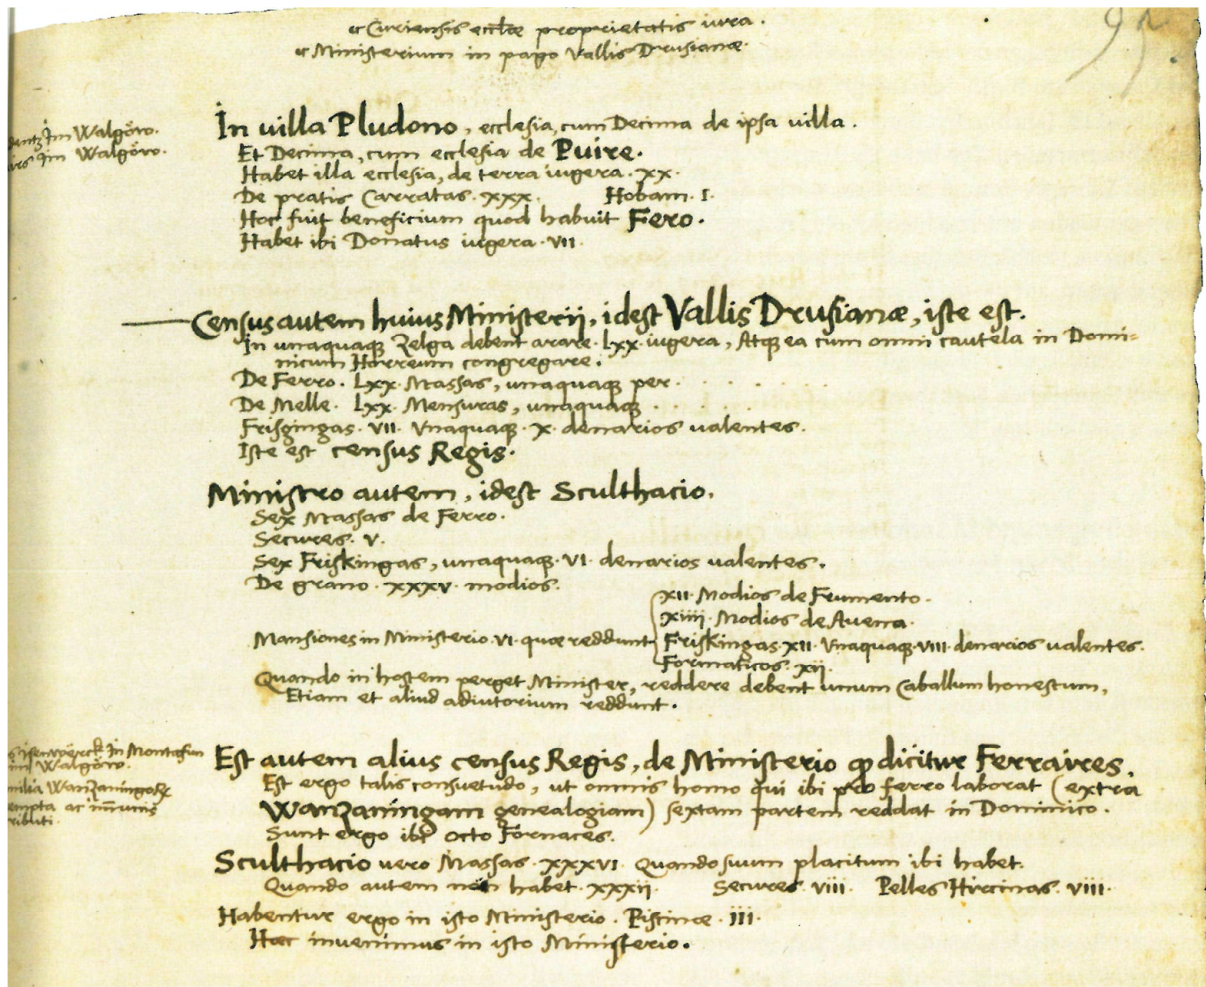 et Curiensis eccl̄æ proprietatis iura.
et Ministerium in pago Vallis Drusianæ.
95
Im Walgöw.
Im Walgöw.
In uilla Pludono, ecclesia, cum Decima de ipsa uilla.
Et Decima, cum ecclesia de Puire.
Habet illa ecclesia, de terra iugera. xx.
De pratis Carratas. xxx. Hobam. I.
Hoc fuit beneficium quod habuit Fero.
Habet ibi Donatus iugera. VII.
Census autem huius Ministerij, idest Vallis Drusianæ, iste est.
In unaquaqꝫ Zelga debent arare. Lxx. iugera, Atqꝫ ea cum omni cautela in Domi-
nicum Horreum congregare.
De Ferro. Lxx. Massas, unaquaqꝫ per . . . . .
De Melle. Lxx. Mensuras, unaquaqꝫ .
Frisgingas. VII. Vnaquaqꝫ. X. denarios ualentes.
Iste est census Regis.
Ministro autem, idest Sculthacio.
Sex Massas de Ferro.
Secures. V.
Sex Friskingas, unaquaqꝫ. VI. denarios ualentes.
De grano. xxxv. modios.
xII. Modios de Frumento.
xiiij. Modios de Auena.
Mansiones in Ministerio. VI. quæ reddunt Friskingas. xII. Vnaquaqꝫ. VIII. denarios ualentes.
Formaticos. xij.
Quando in hostem perget Minister, reddere debent unum Caballum honestum,
Etiam et aliud adiutorium reddunt.
Isenwerck In Montafun
im Walgöw.
Wanzaningoꝝ
ac im̄unis
Est autem alius census Regis, de Ministerio qđ dicitur Ferraires.
Est ergo talis consuetudo, ut omnis homo qui ibi pro ferro laborat (extra
Wanzaningam genealogiam) sextam partem reddat in Dominico.
Sunt ergo ibi octo Fornaces.
Sculthacio uero Massas. xxxVI. Quando suum placitum ibi habet.
Quando autem non habet. xxxij. Secures VIII. Pelles Hircinas. VIII.
Habentur ergo in isto Ministerio. Piscinæ. III.
Hæc inuenimus in isto Ministerio.